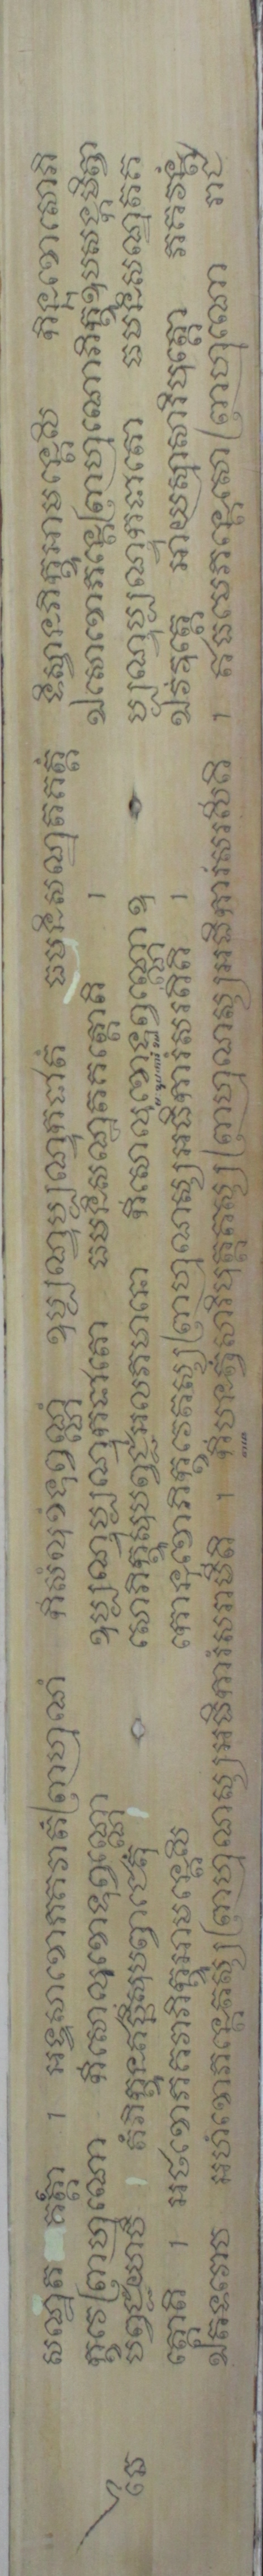 សណ្ឋត គត្តំ ។ អទ្ទសាខោភគវាតំព្រាហ្មណំ កិសំលុខំទុព្វណ្ណំ ឧប្បណ្ឌុប្បណ្ឌុកជាតំ ធមនិសណ្ឋតគត្តំ ទិស្វានភិក្ខូអាមន្តេសិ កិន្នុខោសោភិ
ក្ខវេព្រាហ្មណោ កិសោលុខោទុព្វណ្ណោ ឧប្បណ្ឌុប្បណ្ឌុកជាតោ ធមនិសណ្ឋតគត្តោតិ ។ ឯសោខោភន្តេព្រាហ្មណោភិក្ខូឧបសង្កមិត្វា
បព្វជ្ជំយាចិ តំភិក្ខូនឥច្ឆឹសុបព្វាជេតុំ សោភិក្ខូសុបព្វជ្ជំអលភមានោ កិសោលុខោទុព្វណ្ណោឧ ប្បណ្ឌុប្បណ្ឌុកជាតោ ធមនិសណ្ឋតគ
ត្តោតិ ។ អថខោភគវាភិក្ខូអាមន្តេសិ កោនុខោភិក្ខវេតស្សព្រាហ្មណស្សអធិការំសរតីតិ ។ ឯវំវុត្តេ អាយស្មាសារិបុត្តោ ភគវន្តំ
ឯតទវោច អហំខោភន្តេតស្សព្រាហ្មណស្សអធិការំសរាមីតិ ។ កឹបនត្វំសារិបុត្តតស្សព្រាហ្មណស្សអធិការំសរសីតិ ។ ឥធមេភន្តេសោព្រាហ្មណោ រាជ